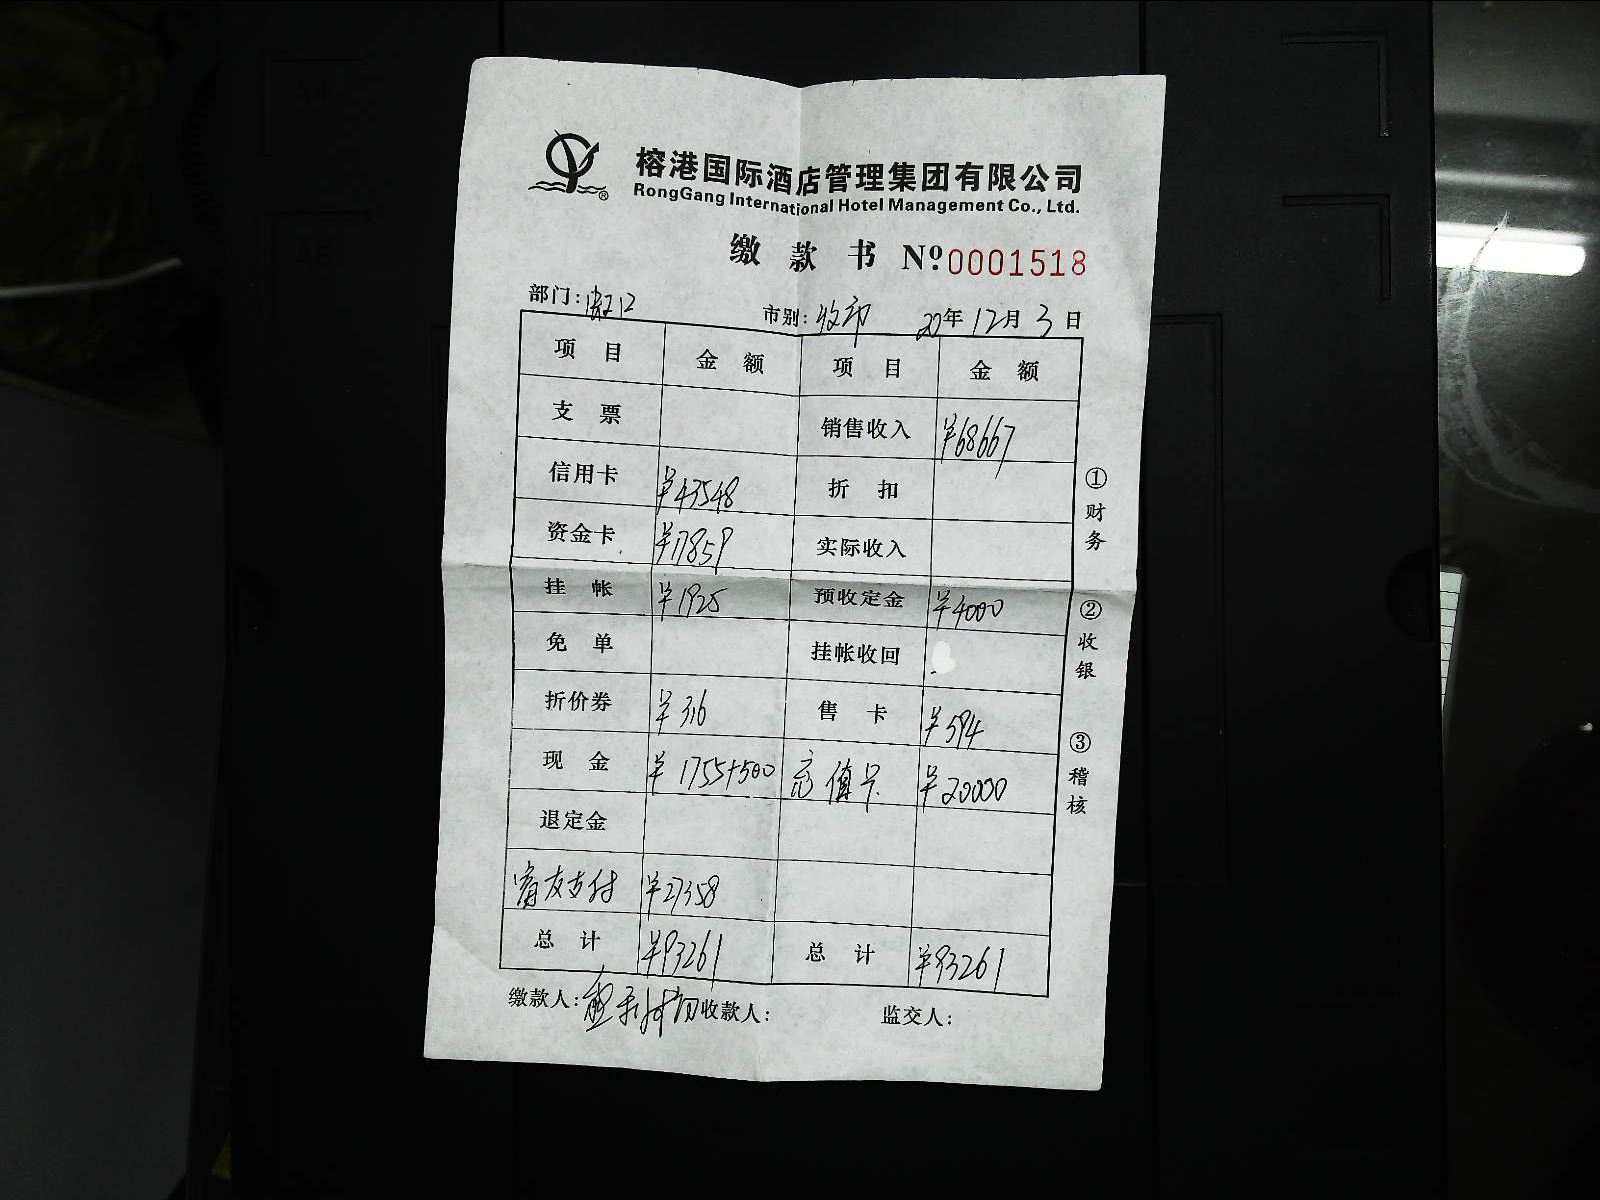 榕港国际酒店管理集团有限公司
RongGang International Hotel Management Co., Ltd.
®
缴 款 书 Nº 0001518
部门: 市别: 收市 20年12月3日
项 目 金 额 项 目 金 额
支 票 销售收入 ¥68667
信用卡 ¥43548 折 扣
资金卡 ¥17859 实际收入
挂 帐 ¥1925 预收定金 ¥4000
免 单 挂帐收回
折价券 ¥316 售 卡 ¥594
现 金 ¥1755+500 充值卡 ¥20000
退定金
富友支付 ¥27358
总 计 ¥93261 总 计 ¥93261
缴款人: 收款人: 监交人:
①财务
②收银
③稽核